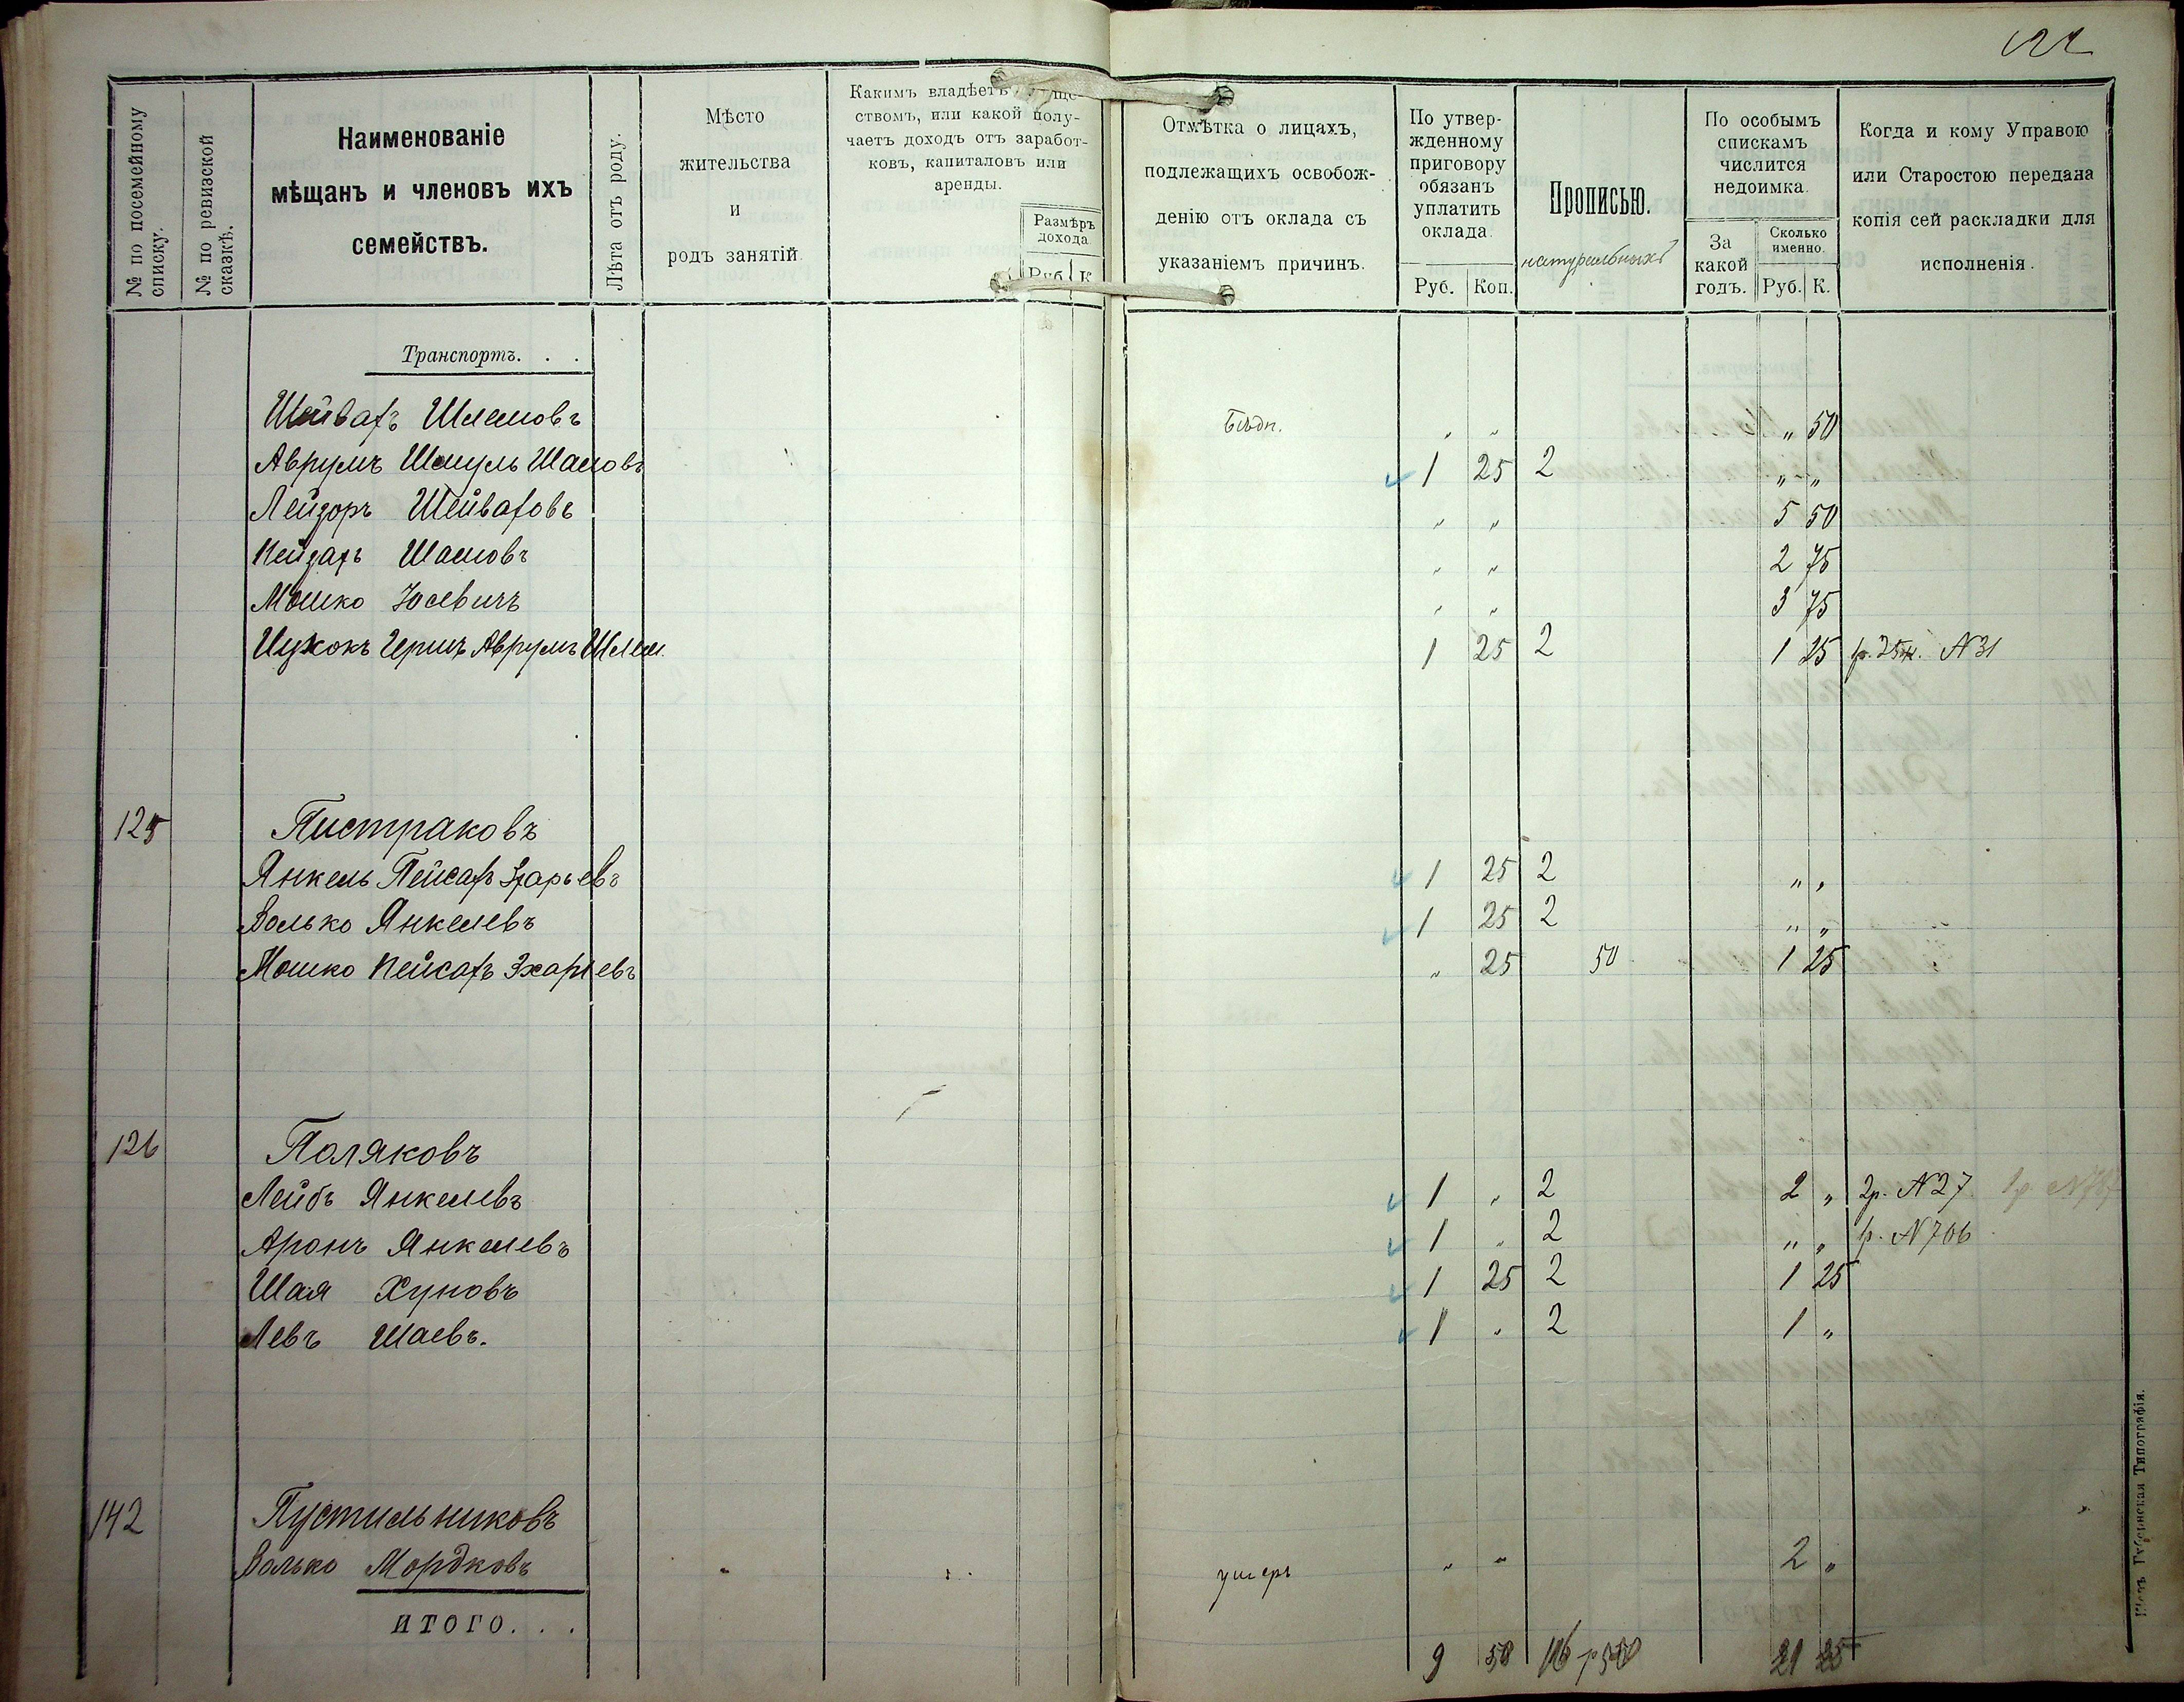 122
№ по посемейному списку.
№ по ревизской сказкѣ.
Наименованіе
мѣщанъ и членовъ ихъ
семействъ.
Лѣта отъ роду.
Мѣсто
жительства
и
родъ занятій.
Какимъ владѣетъ
ствомъ, или какой полу-
чаетъ доходъ отъ заработ-
ковъ, капиталовъ или
аренды.
Размѣръ
дохода
Руб. К
Отмѣтка о лицахъ,
подлежащихъ освобож-
денію отъ оклада съ
указаніемъ причинъ.
По утвер-
жденному
приговору
обязанъ
уплатить
оклада.
Руб. Коп.
Прописью.
натуральныхъ
По особымъ
спискамъ
числится
недоимка.
За
какой
годъ.
Сколько
именно.
Руб. К.
Когда и кому Управою
или Старостою передана
копія сей раскладки для
исполненія.
Транспортъ. . .
Шейвахъ Шлемовъ Бѣдн. " " " 50
Аврумъ Шмуль Шамовъ 1 25 2 " "
Лейзоръ Шейваховъ " " 5 50
Шамовъ " " 2 75
Мошко Іосевичъ " " 3 75
Ицхокъ Герш Аврумъ Шлем. 1 25 2 1 25 N 31
125 Пистраковъ
Янкель Пейсахъ 1 25 2 " "
Волько Янкелевъ 1 25 2 " "
Мошко Пейсахъ Зхарьевъ " 25 50 1 25
126 Поляковъ
Лейбъ Янкелевъ 1 " 2 2 " 2р. N 27
Аронъ Янкелевъ 1 " 2 " " 1р. N 706
Шая Хуновъ 1 25 2 1 25
Левъ Шаевъ. 1 " 2 1 "
142 Пустильниковъ
Волько Мордковъ умеръ " " 2 "
ИТОГО. . .
9 50 16 р 50 21 25
Губернская Типографія.